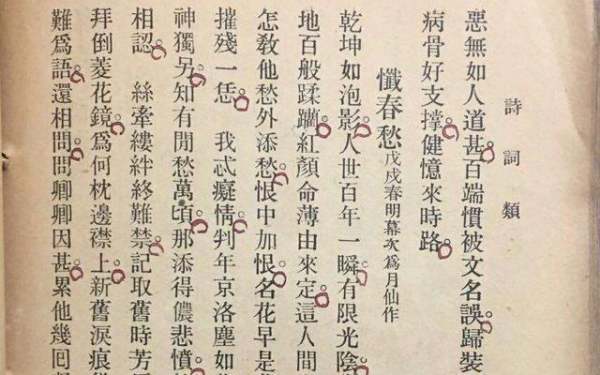 詩詞類
惡無如人道甚百端慣被文名誤歸裝
病骨好支撐健憶來時路
懺春愁戊戌春明幕次爲月仙作
乾坤如泡影人世百年一瞬有限光陰
地百般蹂躪紅顏命薄由來定這人間
怎敎他愁外添愁恨中加恨名花早是
摧殘一恁 我忒癡情判年京洛塵如
神獨另知有閒愁萬頃那添得儂悲憤
相認 絲牽縷絆終難禁記取舊時芳
拜倒菱花鏡爲何枕邊襟上新舊淚痕
難爲語還相問問卿卿因甚累他幾回